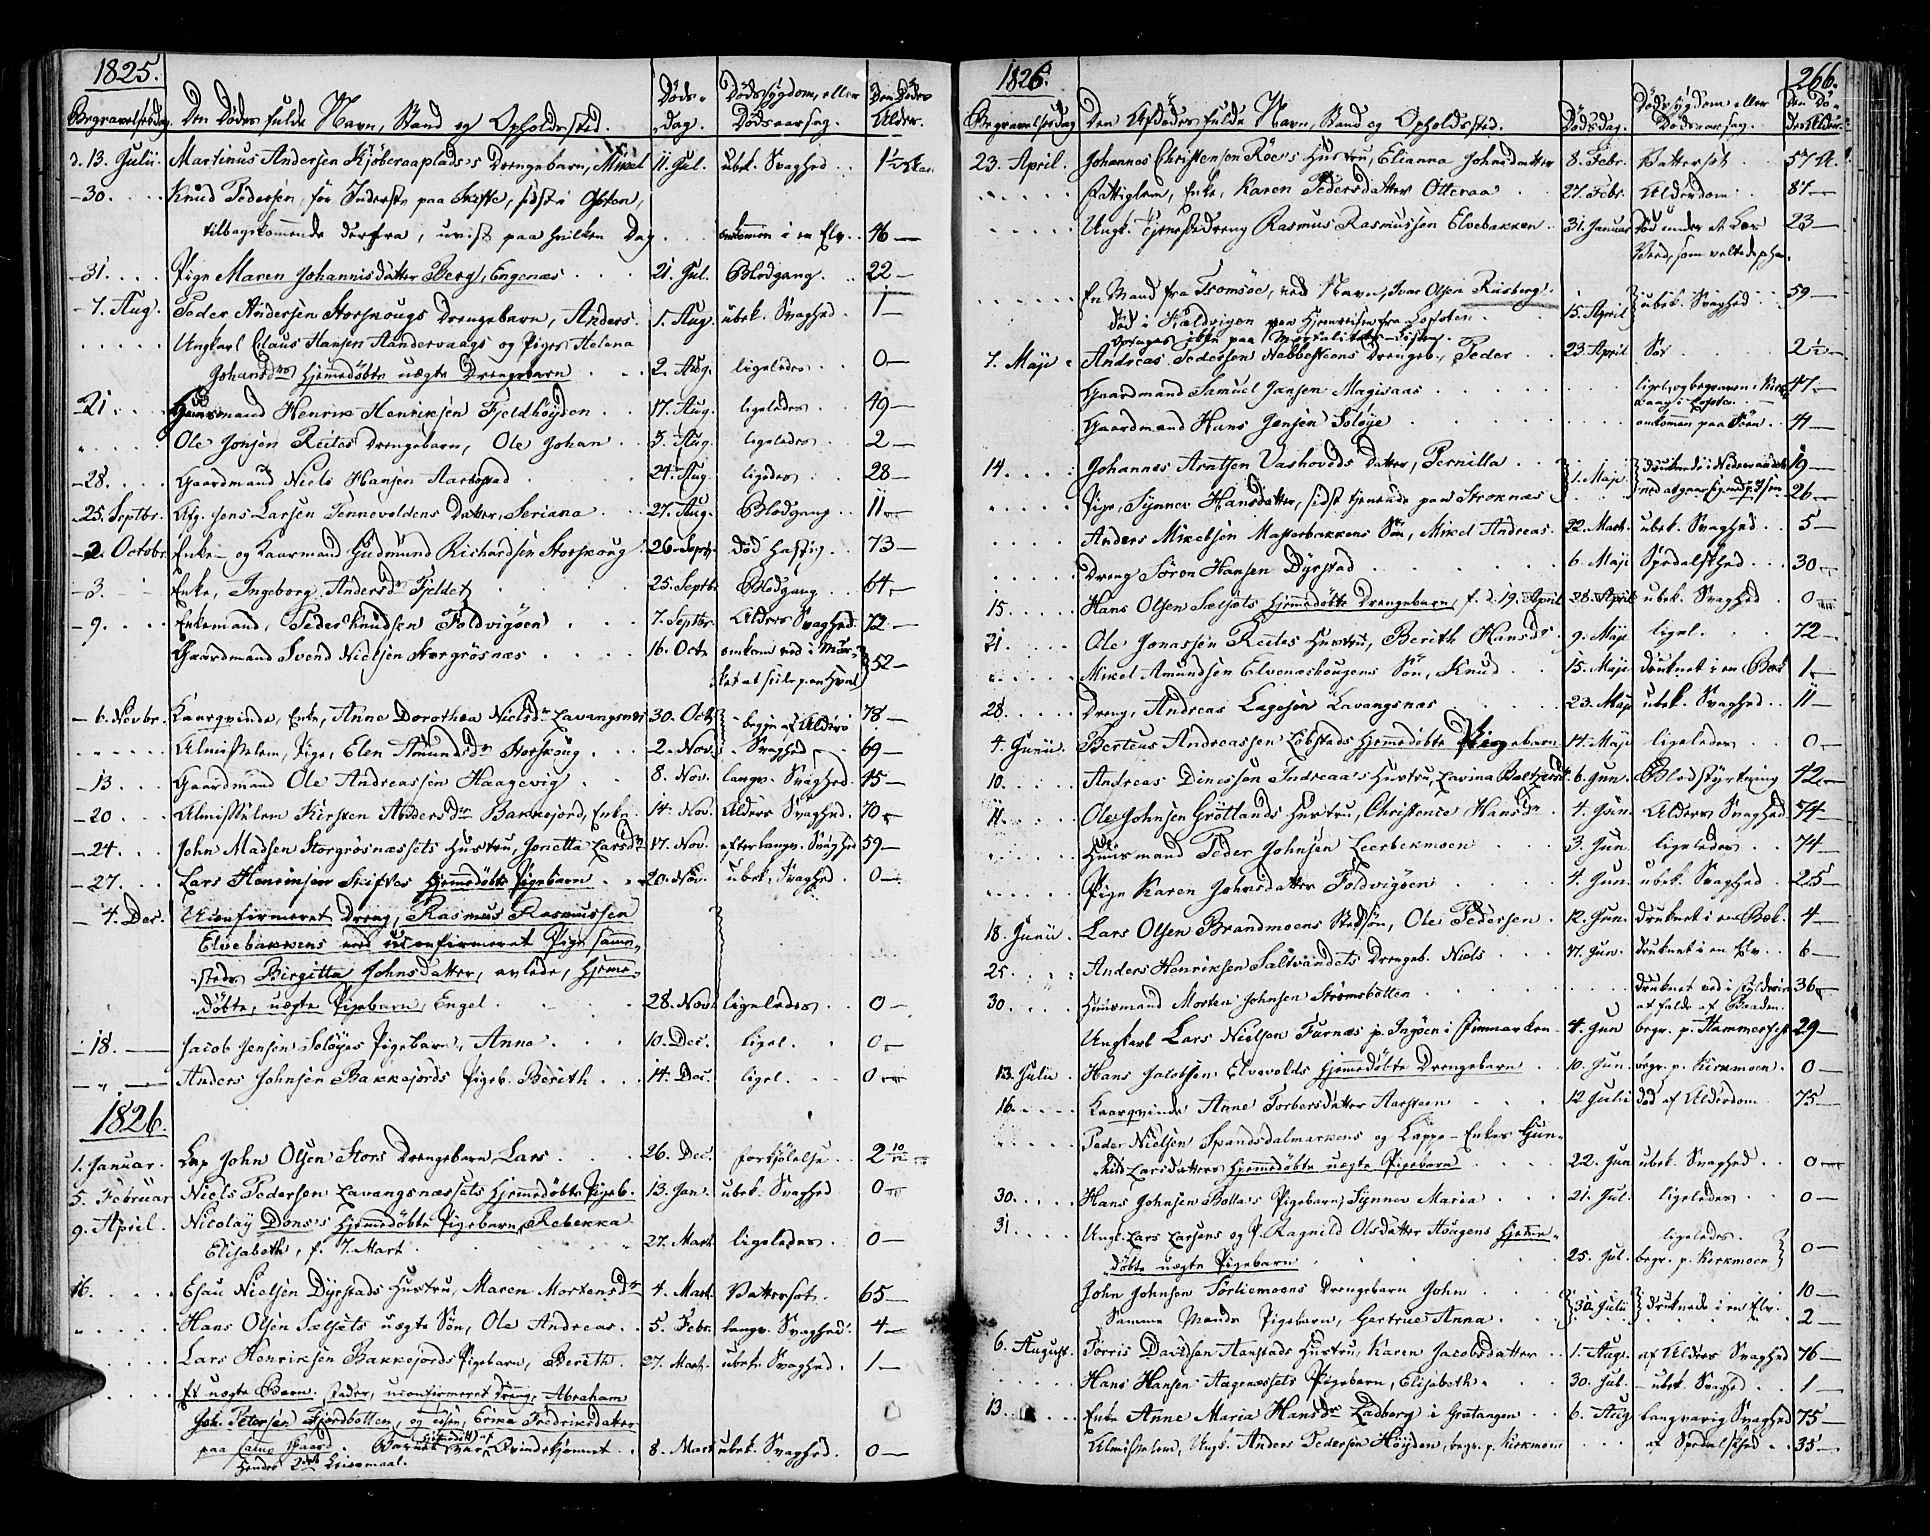 1825.
Begravelsesdag. Den Dødes fulde Navn, Stand og Opholdssted. Døds-dag. Dødssygdom, eller Dødsaarsag. Den Dødes Alder.
13. Julii. Martinus Andersen Kjøberaaplads's Drengebarn, Mikal 11. Jul. ubek. Svaghed 1½ Aar.
30. Knud Pedersen, før Inderste paa sidst i Ofoten,
tilbagekommende derfra, uvist paa hvilken Dag omkommen i en Elv 46
31. Pige Maren Johannisdatter Berg, Engenæs 21. Jul. Blodgang 22
7. Aug. Peder Andersen Storskougs Drengebarn, Anders. 1. Aug. ubek. Svaghed 1
Ungkarl Claus Hansen Sandervaags og Piges Helena
Johansdrs hjemmedøbte uægte Drengebarn 2. Aug. ligeledes 0
21. Huusmand Henrik Henriksen Fjeldhøyden 17. Aug. ligeledes 49
Ole Jonsen Reites Drengebarn, Ole Johan 5. Aug. ligeledes 2
28. Gaardmand Niels Hansen Aarbostad 24. Aug. ligeledes 28
25. Septbr. Afg. Jens Larsen Tennevoldens Datter, Seriana 27. Aug. Blodgang 11
2. Octobr. Enke- og Kaarmand Gudmund Richardsen Storskoug 26. Septr. død hastig 73
3. Enke, Ingeborg Andersdr Fjeldet 25. Septbr. Blodgang 64
9. Enkemand, Peder Knudsen Foldvigøen 7. Septbr. Alders Svaghed 72
Gaardmand Svend Nielsen Storgrøsnæs 16. Octr. omkom ved i Mør-
ket at seile p. en Hval 52
6. Novbr. Kaarqvinde, Enke, Anne Dorothea Nielsdr Lavangsnæs 30. Octr. begge af Alders 78
Almisselem, Pige, Elen Amundsdr Storskoug 2. Nov. Svaghed 69
13. Gaardmand Ole Andreassen Haagevig 8. Nov. langv. Svaghed 45
20. Almisselem Kirsten Andersdr Bakkejord, Enke 14. Nov. Alders Svaghed 70
24. John Madsen Storgrøsnæssets Hustru, Jonetta Larsdr 17. Nov. efter langv. Svaghed 59
27. Lars Henriksen Skifvos hjemmedøbte Pigebarn 20. Nov. ubek. Svaghed 0
4. Dec. Uconfirmeret Dreng, Rasmus Rasmussen
Elvebakkens med uconfirmeret Pige samme-
steds Birgitta Johnsdatter, avlede, hjemme-
døbte, uægte Pigebarn, Engel 28. Nov. ligeledes 0
18. Jacob Jensen Soløyes Pigebarn, Anne 10. Dec. ligel. 0
Anders Johnsen Bakkejords Pigeb. Berith 14. Dec. ligel. 0
1826.
1. Januar. Lap John Olsen Stors Drengebarn Lars 26. Dec. forkjølelse 2 10/12
5. Februar Niels Pedersen Lavangsnæssets hjemmedøbte Pigeb. 13. Jan. ubek. Svaghed 0
9. April. Nicolay Dons's hjemmedøbte Pigebarn Rebekka
Elisabeth, f. 7. Mart 27. Mart. ligeledes 0
16. Esau Nielsen Dyrstads Hustru, Maren Mortensdr 4. Mart. Vattersot 65
Hans Olsen Sælsets uægte Søn, Ole Andreas 5. Febr. langv. Svaghed 4
Lars Henriksen Bakkejords Pigebarn, Berith 27. Mart. ubek. Svaghed 1
Et uægte Barn. Fader, uconfirmeret Dreng, Abraham
Joh. Petersen Fjordbotten, og Pigen, Erika Fredriksdatter
paa samme Gaard. Barnet var Qvindekjønnet 8. Mart ubek. Svaghed 0
Hendes 2det Leiermaal.
1826. 266.
Begravelsesdag Den Afdødes fulde Navn, Stand og Opholdssted. Dødsdag. Dødssygdom eller Dødsaarsag. Den Dødes Alder.
23. April. Johannes Christensen Røe's Hustru, Elianna Johnsdatter 8. Febr. Vattersot 57 A.
Fattiglem, Enke, Karen Pedersdatter Otteraa 27. Febr. Alderdom 87
Ungk. Tjenestedreng Rasmus Rasmussen Elvebakken 31. Januar død under et Læs
Veed, som veltede p. ham 23
En Mand fra Tromsøe, ved Navn, Ivar Olsen Rusberg
død i Kieldvigen paa Hjemreisen fra Lofoten. 15. April ubek. Svaghed 59
optages ikke paa Mortalitets-Listen.
7. Maji Andreas Pedersen Nebbesteens Drengeb., Peder 23. April Sot 2½
Gaardmand Samuel Jansen Magisaas ligel. og begraven i Kirk
vaag i Lofoten 47
Gaardmand Hans Jensen Soløye omkommen paa Søen 41
14. Johannes Arntsen Vashoveds Datter, Pernilla 1. Maji druknede i Nedrevandet 19
Pige, Synnev Hansdatter, sidst tjenende paa Stroknæs ved at gaae igiennem Isen 26
Anders Mikelsen Masterbakkens Søn, Mikel Andreas 22. Mart. ubek. Svaghed 5
Dreng Søren Hansen Dyrstad 6. Maji Spedalskhed 30
15. Hans Olsen Sælsets hjemmedøbte Drengebarn, f. d. 19. April 28. April ubek. Svaghed 0
21. Ole Jonassen Reites Hustru, Berith Hansdr 9. Maji ligel. 72
Mikel Amundsen Elvenæshougens Søn, Knud 15. Maji druknet i en Bæk 1
28. Dreng, Andreas Lagesen Lavangsnæs 23. Maji ubek. Svaghed 11
4. Junii Berteus Andreassen Løbstads hjemmedøbte Pigebarn 14. Maji ligeledes 0
10. Andreas Dinessen Indreaa's Hustru, Lavina Baltzersdr 6. Jun. Blodstyrtning 42
11. Ole Johnsen Grøtlands Hustru, Christence Hansdr 4. Jun. Alders Svaghed 54
Huusmand Peder Johnsen Leerbekmoen 3. Jun. ligeledes 74
Pige Karen Johnsdatter Foldvigøen 4. Jun. ubek. Svaghed 25
18. Junii. Lars Olsen Brandmoens Stedsøn, Ole Pedersen 12. Jun. druknet i en Bæk. 4
25. Anders Henriksen Saltvandets Drengeb. Niels 17. Jun. druknet i en Elv 6
30. Huusmand Morten Johnsen Strømsbotten druknet ved i
at falde af Baaden 36
Ungkarl Lars Nielsen Furnæs p. Ingøen i Finmarken 4. Jun begr. p. Hammerfest 29
13. Julii Hans Jacobsen Elvevolds hjemmedøbte Drengebarn 10. Jun. begr. p. Kirkmoen 0
16. Kaarqvinde Anne Torbersdatter Aarsteen 12 Julii død af Alderdom 75
Peder Nielsen Spandsdalmarkens og Lappe-Enkes Gun-
hild Larsdatters hjemmedøbte uægte Pigebarn 22. Jun ubek. Svaghed 0
30. Hans Johnsen Bolla's Pigebarn, Synnev Maria 21. Jul. ligeledes 0
31. Ungk. Lars Larsens og P. Ragnild Olsdatter Hougens hjemme-
døbte uægte Pigebarn 25. Jul. ligeledes. begr. p. Kirkmoen 0
John Johnsen Sørliemoens Drengebarn John 30. Julii druknede i en Elv 10
Samme Mands Pigebarn, Gertrue Anna 2
6. August. Tørris Davidsen Aanstads Hustru, Karen Jacobsdatter 1. Aug. af Alders Svaghed 76
Hans Hansen Aagenæssets Pigebarn, Elisabeth 30. Jul. ubek. Svaghed 1
13. Enke Anne Maria Hansdr Ladberg i Gratangen 6. Aug langvarig Svaghed 75
Almisselem, Ungk. Anders Pedersen Høyden, begr. p. Kirkmoen af Spedalskhed 35